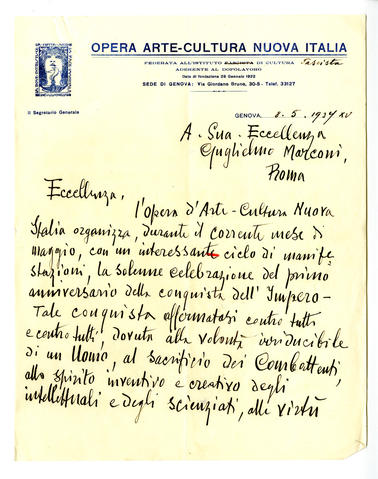 OPERA ARTE-CULTURA NUOVA ITALIA
FEDERATA ALL'ISTITUTO FASCISTA DI CULTURA fascista
ADERENTE AL DOPOLAVORO
Data di fondazione 28 Gennaio 1922
SEDE DI GENOVA: Via Giordano Bruno, 30-5 - Telef. 33127
Il Segretario Generale
GENOVA, 8.5.1937 XV
A Sua Eccellenza
Guglielmo Marconi,
Roma
Eccellenza,
l'Opera d'Arte-Cultura Nuova
Italia organizza, durante il corrente mese di
maggio, con un interessante ciclo di manife
stazioni, la solenne celebrazione del primo
anniversario della conquista dell'Impero-
Tale conquista affermatasi contro tutti
e contro tutti, dovuta alla volontà irriducibile
di un Uomo, al sacrificio dei Combattenti,
allo spirito inventivo e creativo degli
intellettuali e degli scienziati, alle virtù